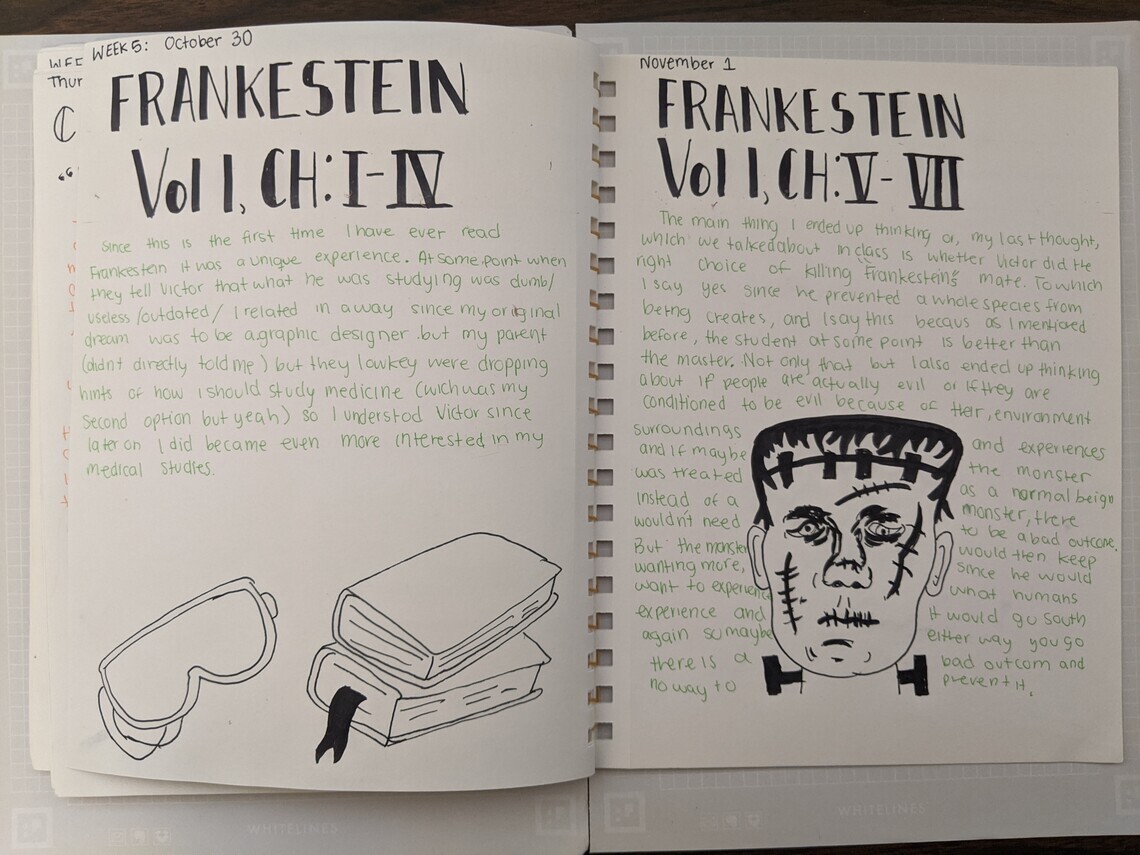 WEEK 5: October 30
FRANKESTEIN
Vol 1, CH: I-IV
Since this is the first time I have ever read
Frankestein it was a unique experience. At some point when
they tell Victor that what he was studying was dumb/
useless/outdated/ I related in a way since my original
dream was to be a graphic designer but my parent
(didn't directly told me) but they lowkey were dropping
hints of how I should study medicine (wich was my
second option but yeah) so I understod Victor since
later on I did became even more interested in my
medical studies.
WEE
Thur
November 1
FRANKESTEIN
Vol 1, CH: V-VII
The main thing I ended up thinking or, my last thought,
which we talked about in class is whether Victor did the
right choice of killing "Frankestein's" mate. To which
I say yes since he prevented a whole species from
being creates, and I say this becaus as I mentioed
before, the student at some point is better than
the master. Not only that but I also ended up thinking
about if people are actually evil or if they are
conditioned to be evil because of their, environment
surroundings and experiences
and if maybe the monster
was treated as a normal beign
instead of a monster, there
wouldn't need to be a bad outcome.
But the monster would then keep
wanting more, since he would
want to experience what humans
experience and it would go south
again so maybe either way you go
there is a bad outcom and
no way to prevent it.
WHITELINES
WHITELINES